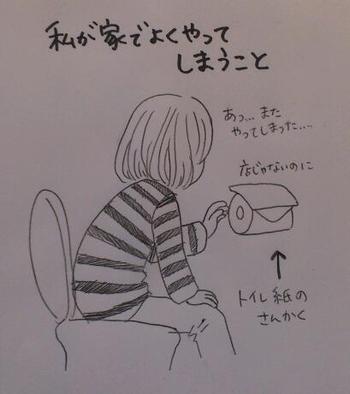 私が家でよくやって
しまうこと
あっ...また
やってしまった....
店じゃないのに
トイレ紙の
さんかく